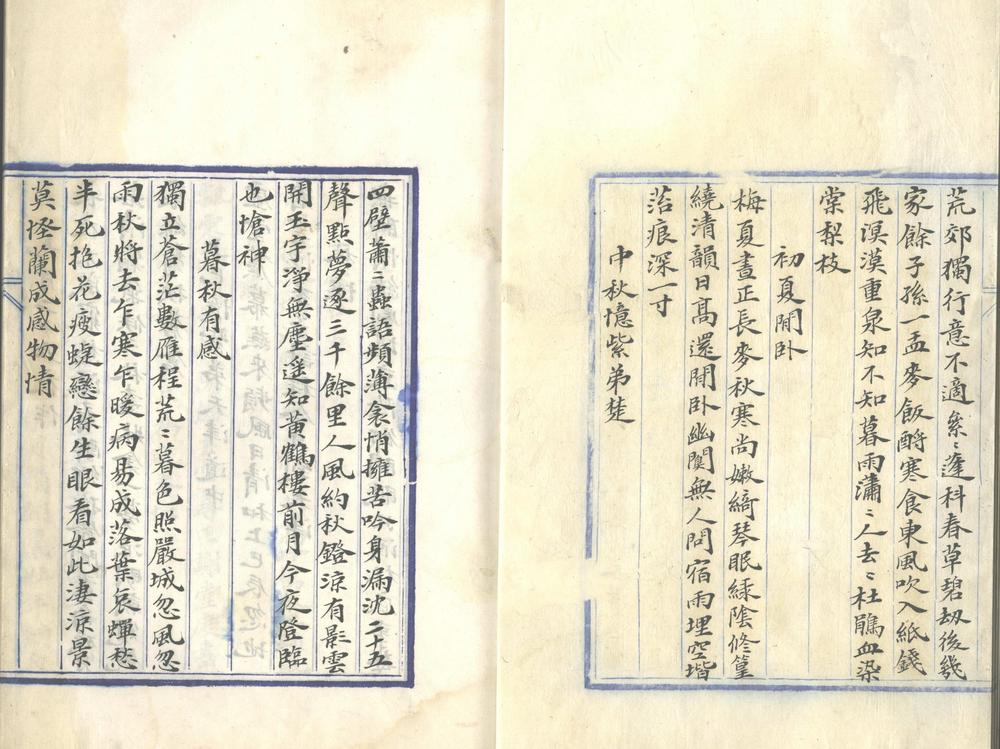 荒郊獨行意不適纍〻蓬科春草碧劫後幾
家餘子孫一盂麥飯酹寒食東風吹入紙錢
飛溟漠重泉知不知暮雨瀟〻人去〻杜鵑血染
棠梨枝
初夏閒卧
梅夏晝正長麥秋寒尚嫩綺琴眠綠陰修篁
繞清韻日高還閒卧幽闃無人問宿雨埋空堦
苔痕深一寸
中秋憶紫弟楚
四壁蕭〻蟲語頻薄衾悄擁苦吟身漏沈二十五
聲點夢逐三千餘里人風約秋鐙涼有影雲
開玉宇淨無塵遥知黃鶴樓前月今夜登臨
也愴神
暮秋有感
獨立蒼茫數雁程荒〻暮色照嚴城忽風忽
雨秋將去乍寒乍暖病易成落葉哀蟬愁
半死抱花瘦蜨戀餘生眼看如此淒涼景
莫怪蘭成感物情